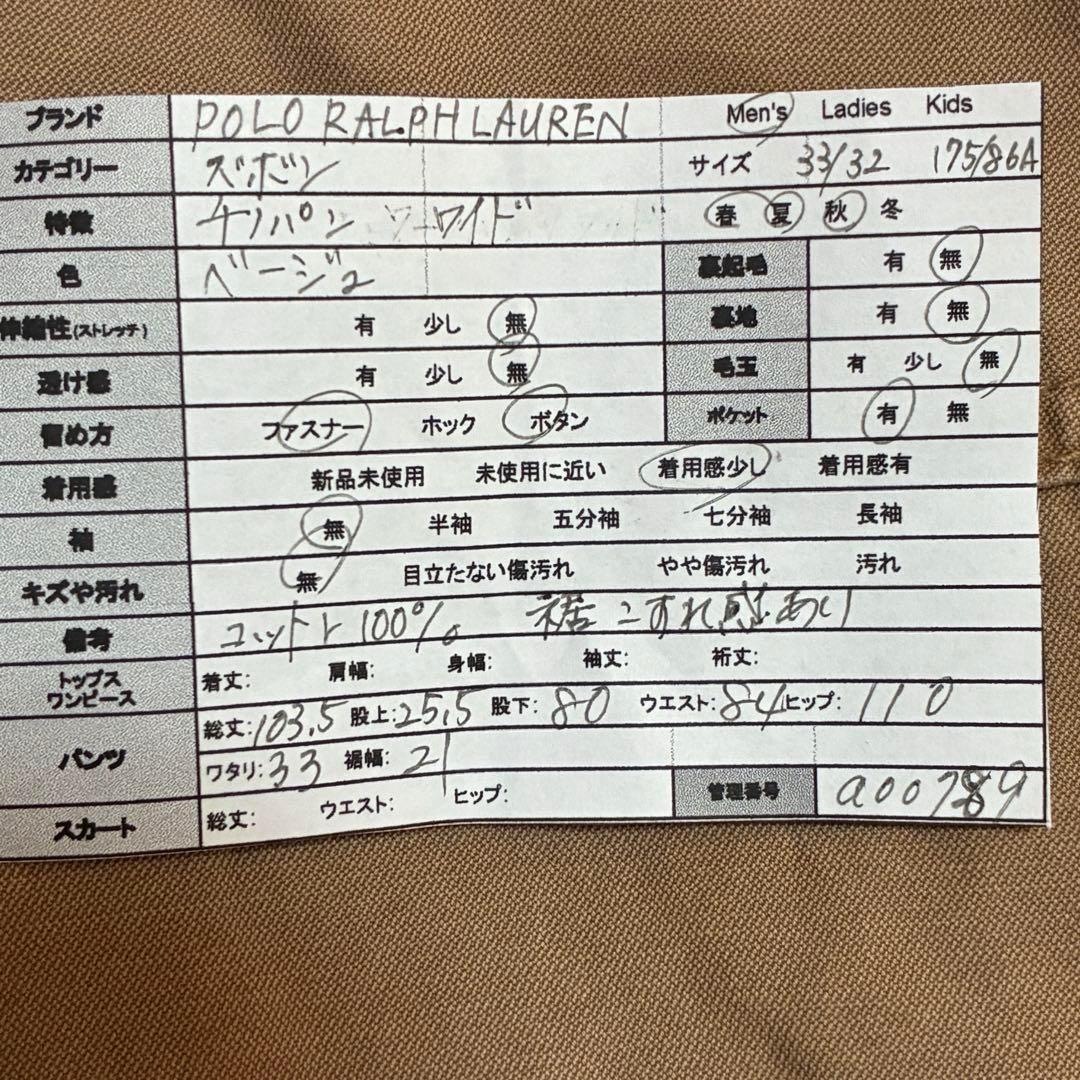 ブランド POLO RALPH LAUREN Men's Ladies Kids
カテゴリー ズボン サイズ 33/32 175/86A
特徴 チノパン ワイド 春 夏 秋 冬
色 ベージュ 裏起毛 有 無
伸縮性(ストレッチ) 有 少し 無 裏地 有 無
透け感 有 少し 無 毛玉 有 少し 無
留め方 ファスナー ホック ボタン ポケット 有 無
着用感 新品未使用 未使用に近い 着用感少し 着用感有
袖 無 半袖 五分袖 七分袖 長袖
キズや汚れ 無 目立たない傷汚れ やや傷汚れ 汚れ
備考 コットン100% 裾こすれ感あり
トップス ワンピース 着丈: 肩幅: 身幅: 袖丈: 裄丈:
パンツ 総丈:103.5 股上:25.5 股下:80 ウエスト:84 ヒップ:110
ワタリ:33 裾幅:21
スカート 総丈: ウエスト: ヒップ: 管理番号 a00789